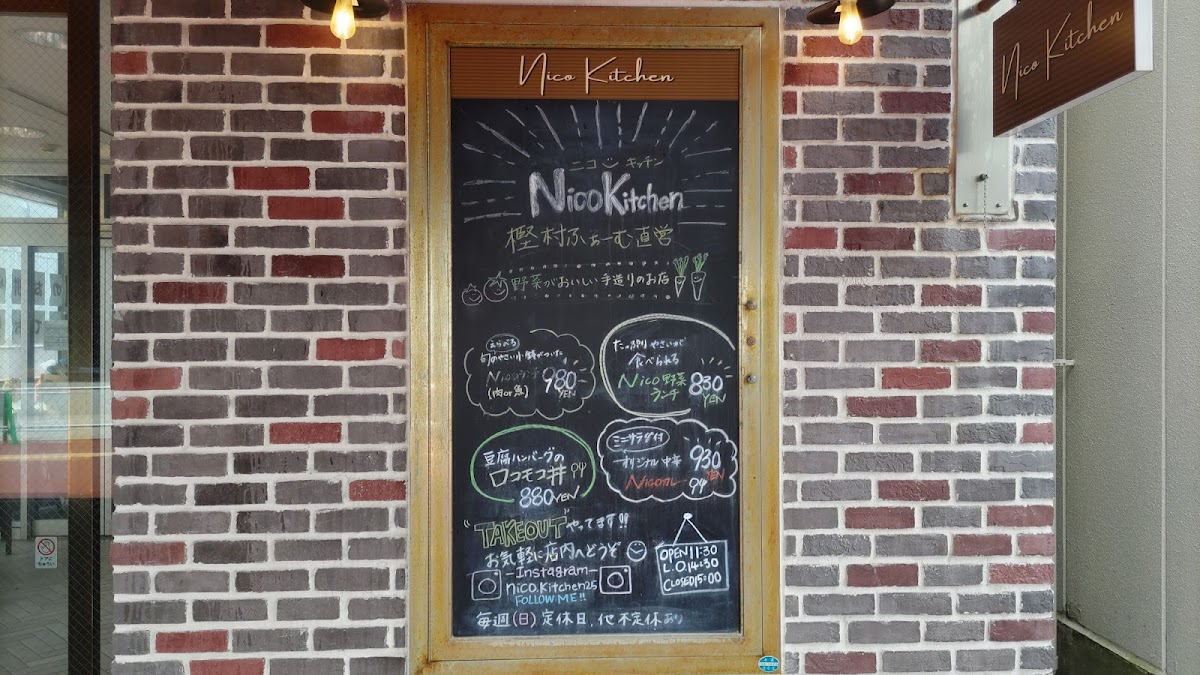 Nico Kitchen
Nico Kitchen
ニコ キッチン
NicoKitchen
樫村ふぁーむ直営
野菜がおいしい手造りのお店
えらべる
旬のやさい小鉢がついた
Nicoランチ 980 YEN
(肉or魚)
たっぷりやさいが
食べられる
Nico野菜
ランチ 830 YEN
豆腐ハンバーグの
ロコモコ丼
880YEN
ミニサラダ付
オリジナル 930 YEN
NICOカレー
"TAKEOUT"やってます!!
お気軽に店内へどうぞ
-Instagram-
nico.kitchen25
FOLLOW ME!!
OPEN 11:30
L.O.14:30
CLOSED15:00
毎週(日)定休日、他不定休あり